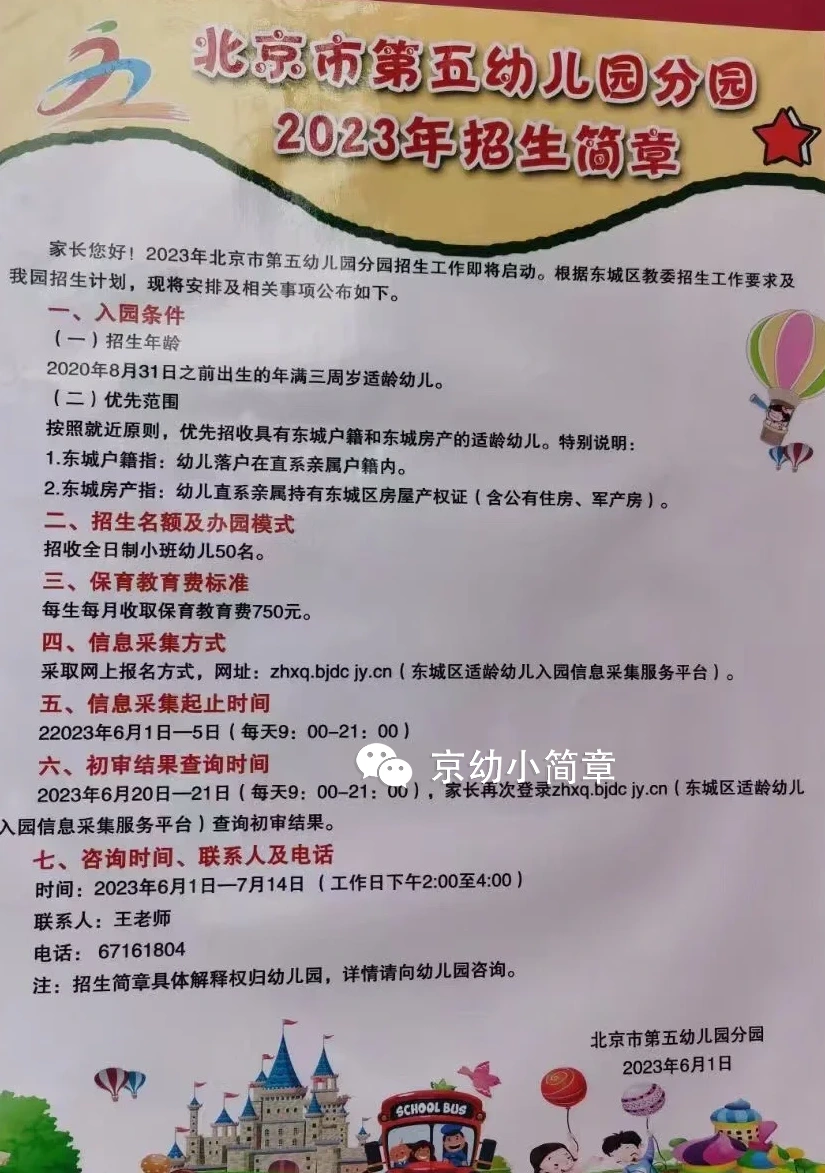 北京市第五幼儿园分园
2023年招生简章
家长您好！2023年北京市第五幼儿园分园招生工作即将启动。根据东城区教委招生工作要求及
我园招生计划，现将安排及相关事项公布如下。
一、入园条件
（一）招生年龄
2020年8月31日之前出生的年满三周岁适龄幼儿。
（二）优先范围
按照就近原则，优先招收具有东城户籍和东城房产的适龄幼儿。特别说明：
1.东城户籍指：幼儿落户在直系亲属户籍内。
2.东城房产指：幼儿直系亲属持有东城区房屋产权证（含公有住房、军产房）。
二、招生名额及办园模式
招收全日制小班幼儿50名。
三、保育教育费标准
每生每月收取保育教育费750元。
四、信息采集方式
采取网上报名方式，网址：zhxq.bjdc jy.cn（东城区适龄幼儿入园信息采集服务平台）。
五、信息采集起止时间
22023年6月1日—5日（每天9：00-21：00）
京幼小简章
六、初审结果查询时间
2023年6月20日—21日（每天9：00-21：00），家长再次登录zhxq.bjdc jy.cn（东城区适龄幼儿
入园信息采集服务平台）查询初审结果。
七、咨询时间、联系人及电话
时间：2023年6月1日—7月14日（工作日下午2:00至4:00）
联系人：王老师
电话： 67161804
注：招生简章具体解释权归幼儿园，详情请向幼儿园咨询。
北京市第五幼儿园分园
2023年6月1日
SCHOOL BUS